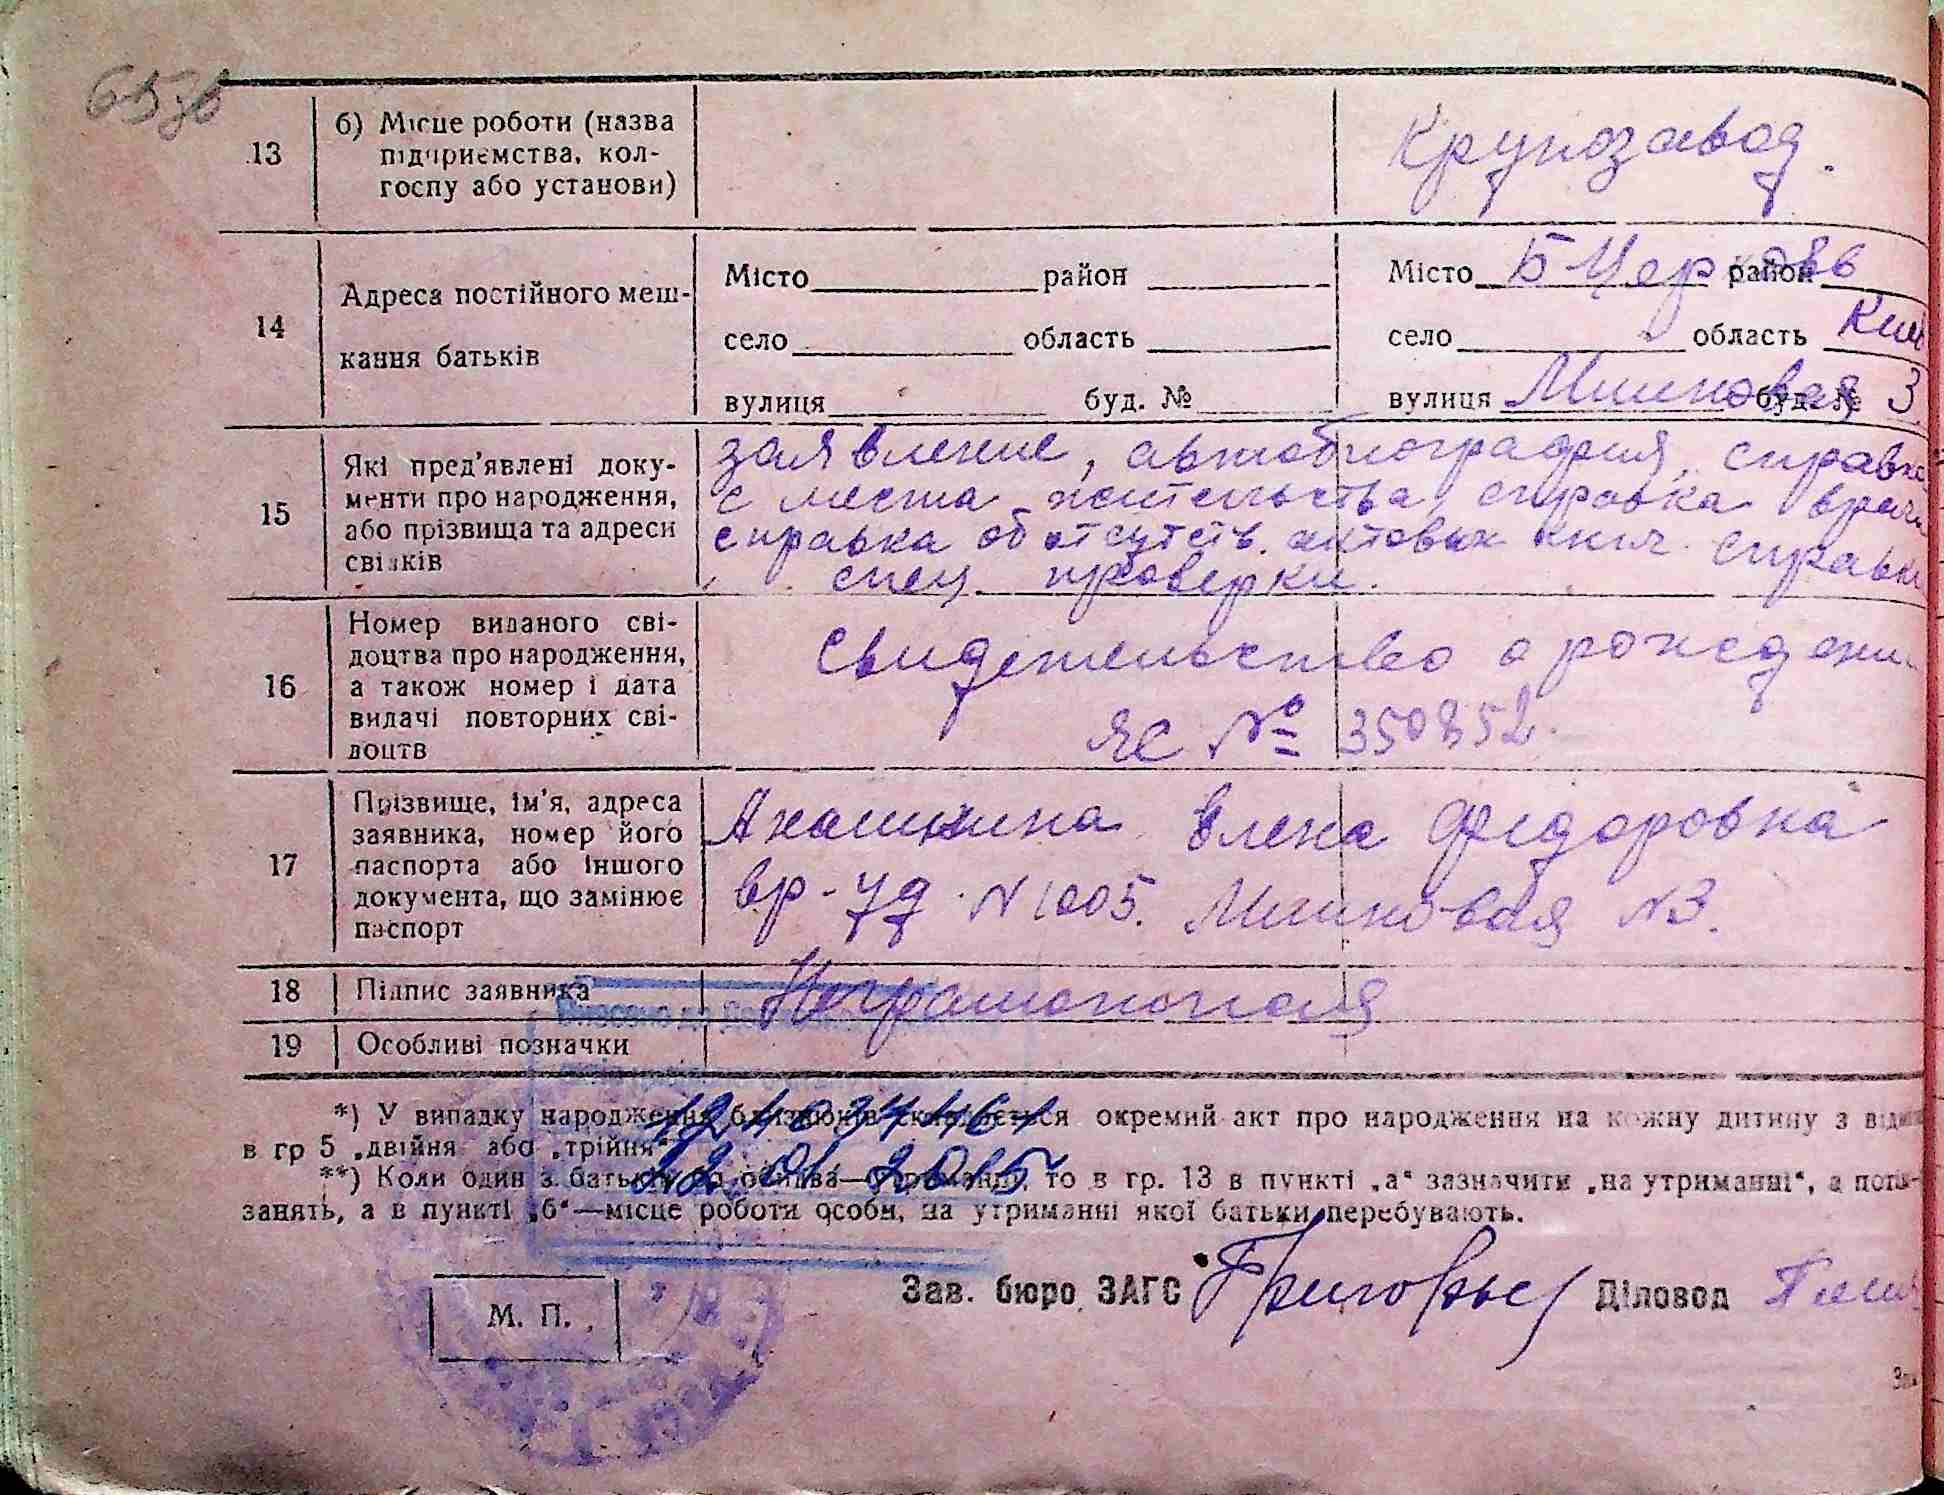 13
б) Місце роботи (назва
підприємства, кол-
госпу або установи)
Крупозавод.
14
Адреса постійного меш-
кання батьків
Місто район
село область
вулиця буд. №
Місто Б Церковь район
село область Ки
вулиця буд. № 3
15
Які пред'явлені доку-
менти про народження,
або прізвища та адреси
свідків
заявление, автобиография, справка
с места жительства, справка врача
справка об отсутств. актовых книг. справка
спец. проверки.
16
Номер виданого сві-
доцтва про народження,
а також номер і дата
видачі повторних сві-
доцтв
Свидетельство о рождени
ЯС № 350852.
17
Прізвище, ім'я, адреса
заявника, номер його
паспорта або іншого
документа, що замінює
паспорт
Елена Федоровна
вр-уд. N 1005. N3.
18
Підпис заявника
Неграмотная
19
Особливі позначки
*) У випадку народження близнюків складається окремий акт про народження на кожну дитину з
в гр 5 „двійня або „трійня“
22 01 2015
**) Коли один з батьків на утриманні, то в гр. 13 в пункті „а“ зазначити „на утриманні“, а
занять, а в пункті „б“—місце роботи особи, на утриманні якої батьки перебувають.
М. П.
Зав. бюро ЗАГС Діловод